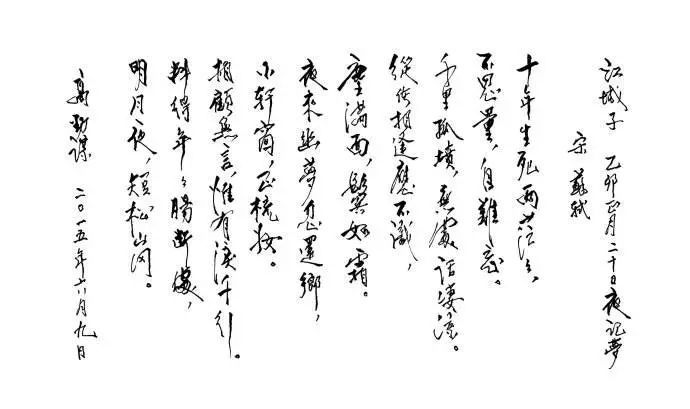 江城子 乙卯正月二十日夜記夢
宋 蘇軾
十年生死兩茫々，
不思量，自難忘。
千里孤墳，無處話凄涼。
縱使相逢應不識，
塵滿面，鬢如霜。
夜來幽夢忽還鄉，
小軒窗，正梳妝。
相顧無言，惟有淚千行。
料得年々腸斷處，
明月夜，短松岡。
高 二〇一五年六月九日